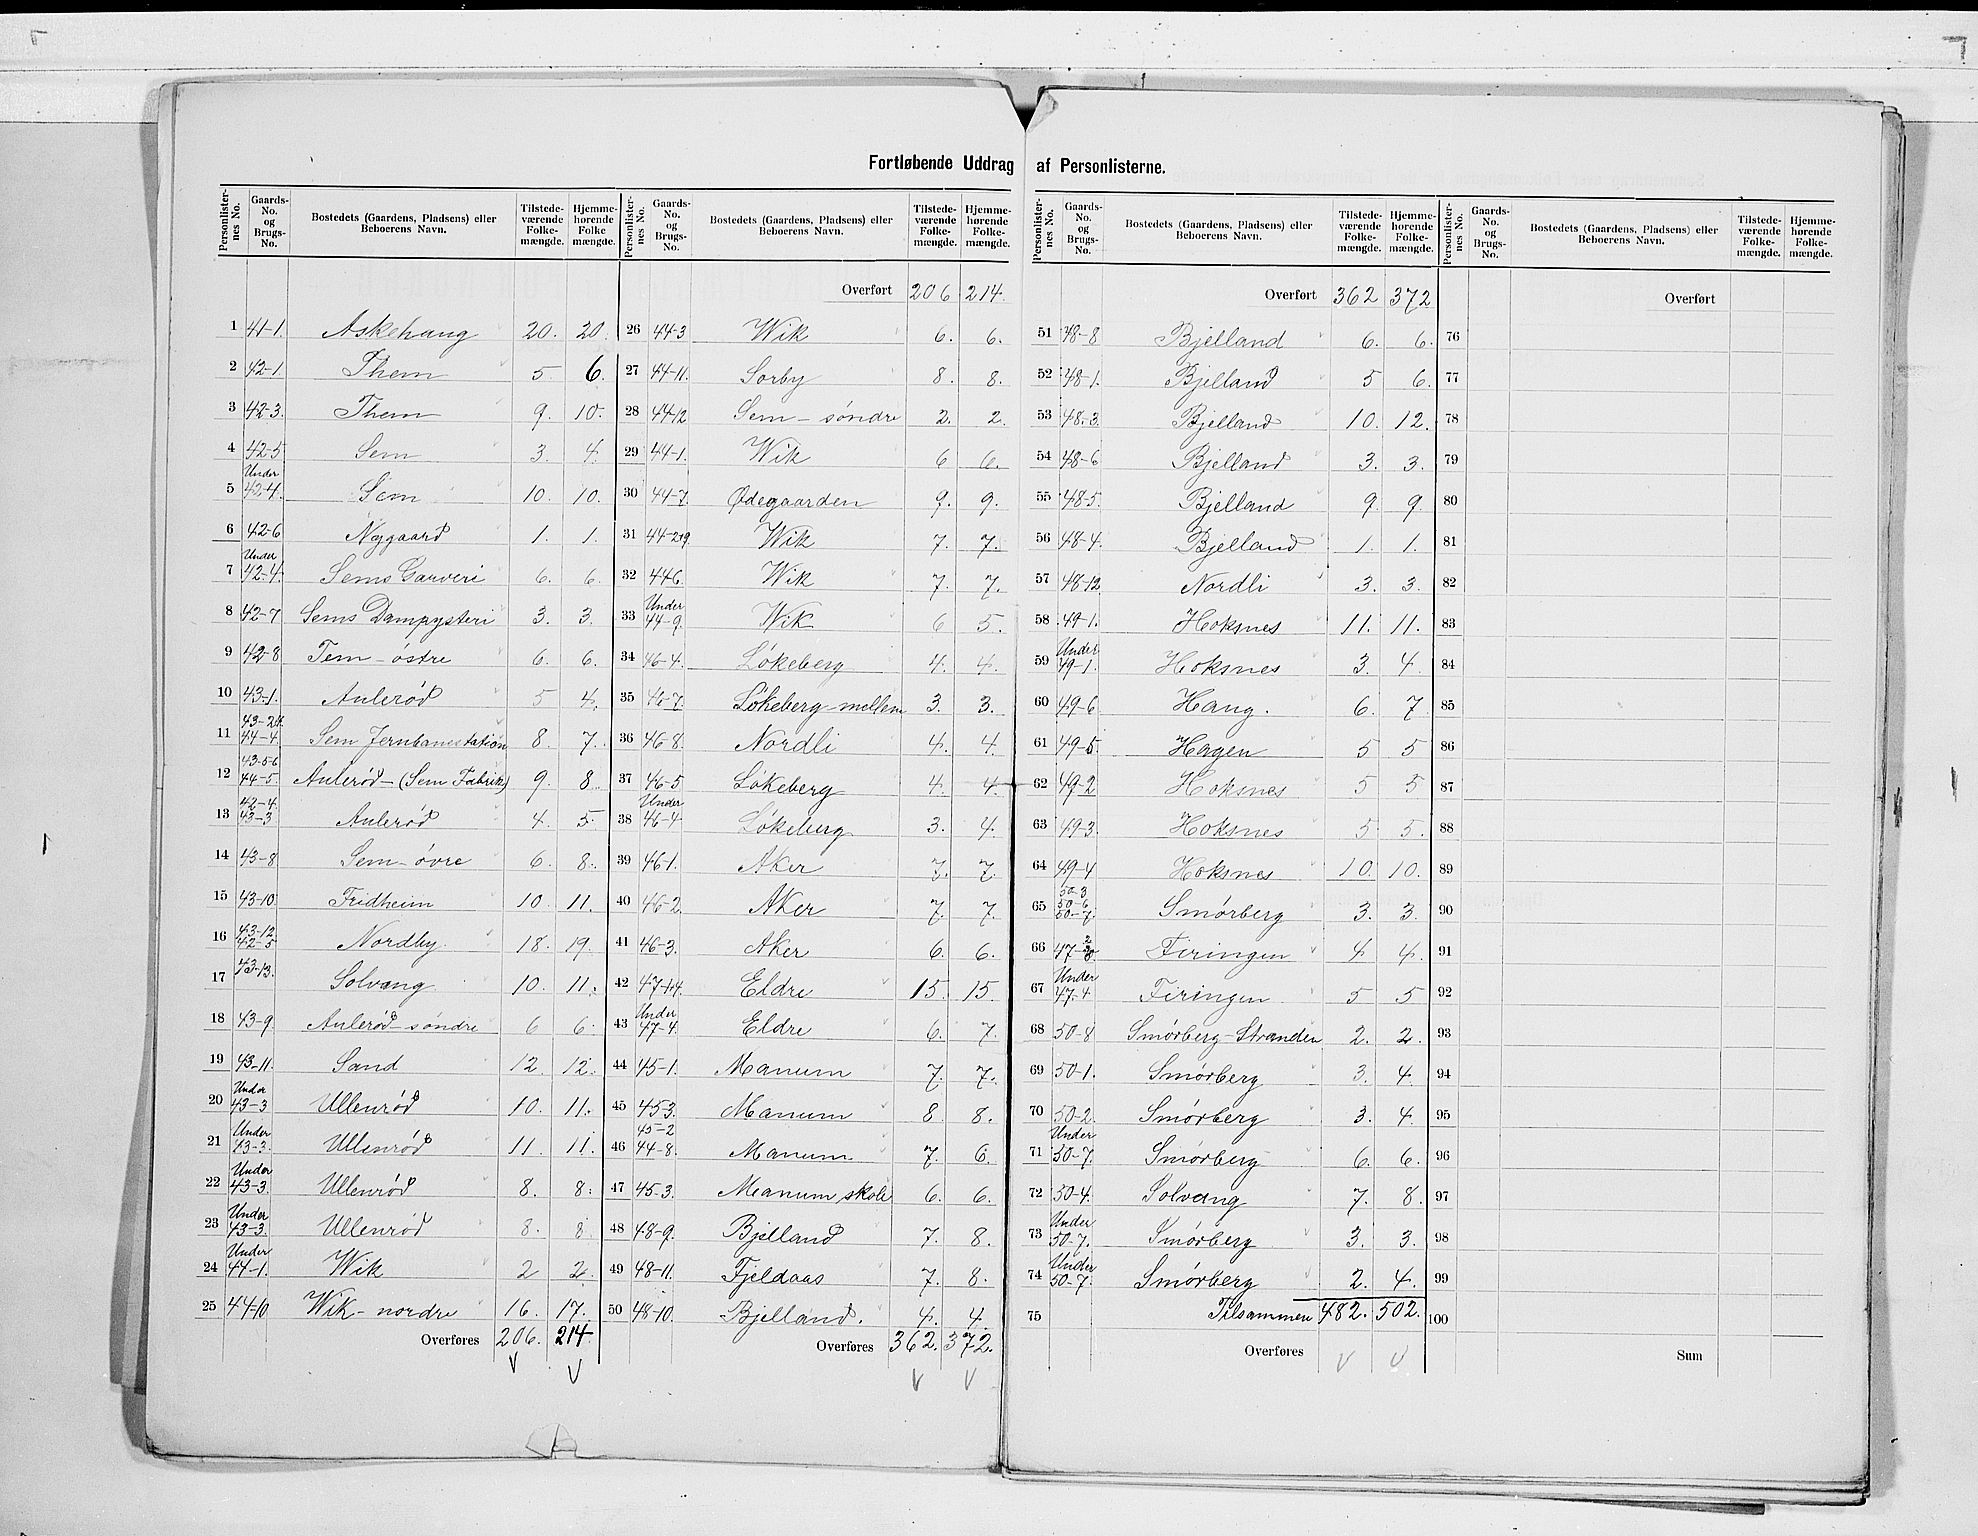 Fortløbende Uddrag af Personlisterne.
Personlister-nes No. Gaards-No. og Brugs-No. Bostedets (Gaardens, Pladsens) eller Beboerens Navn. Tilstede-værende Folke-mængde. Hjemme-hørende Folke mængde.
1 41-1. Askehaug 20. 20.
2 42-1. Them 5. 6.
3 42-3. Them 9. 10.
4 42-5 Sem 3. 4.
5 Under 42-4. Sem 10. 10.
6 42-6 Nygaard 1. 1.
7 Under 42-4. Sems Garveri 6. 6.
8 42-7 Sems Dampysteri 3. 3.
9 42-8 Tem-östre 6. 6.
10 43-1. Aulerød 5 4.
11 43-24. 44-4. Sem Jernbanestation 8. 7.
12 43-5-6 44-5. Aulerød-(Sem Fabrik) 9. 8.
13 42-4. 43-3 Aulerød 4. 5.
14 43-8 Sem-övre 6. 8.
15 43-10 Fridheim 10. 11.
16 43-12 42-5 Nordby. 18. 19.
17 43-13. Solvang 10. 11.
18 43-9. Aulerød-søndre 6 6.
19 43-11. Sand 12. 12.
20 Under 43-3 Ullenrød 10. 11.
21 Under 43-3. Ullenrød 11. 11.
22 Under 43-3. Ullenrød 8. 8.
23 Under 43-3. Ullenrød 8. 8
24 Under 44-1. Wik 2 2.
25 44-10 Wik-nordre 16. 17.
Overføres 206. 214.
Personlister-nes No. Gaards-No. og Brugs-No. Bostedets (Gaardens, Pladsens) eller Beboerens Navn. Tilstede-værende Folke-mængde. Hjemme-hørende Folke-mængde.
Overført 206 214.
26 44-3 Wik 6. 6.
27 44-11. Sorby 8. 8.
28 44-12 Sem-søndre 2. 2.
29 44-1. Wik 6 6.
30 44-7. Ødegaarden 9. 9.
31 44-2+9 Wik 7. 7.
32 44-6. Wik 7. 7.
33 Under 44-9. Wik 6 5.
34 46-4. Løkeberg 4. 4.
35 46-7. Løkeberg-mellem 3. 3.
36 46-8. Nordli 4. 4.
37 46-5 Løkeberg 4. 4.
38 Under 46-4 Løkeberg. 3. 4.
39 46-1. Aker 7. 7.
40 46-2. Aker 7. 7.
41 46-3. Aker 6. 6.
42 47-1+4 Eldre 15. 15.
43 Under 47-4. Eldre 6. 7.
44 45-1. Manum 7. 7.
45 45-3. Manum 8 8.
46 45-2 44-8. Manum 7. 6.
47 45-3. Manum skole 6. 6.
48 48-9. Bjelland 7. 8.
49 48-11. Fjeldaas 7. 8.
50 48-10. Bjelland. 4. 4.
Overføres 362. 372.
Personlister-nes No. Gaards-No. og Brugs-No. Bostedets (Gaardens, Pladsens) eller Beboerens Navn. Tilstede-værende Folke-mængde. Hjemme-hørende Folke-mængde.
Overført 362 372
51 48-8 Bjelland 6. 6.
52 48-1. Bjelland 5 6.
53 48-3. Bjelland 10. 12.
54 48-6 Bjelland 3. 3.
55 48-5. Bjelland 9. 9.
56 48-4. Bjelland 1. 1.
57 48-12 Nordli 3. 3.
58 49-1. Hoksnes 11. 11.
59 Under 49-1. Hoksnes 3. 4.
60 49-6 Haug. 6. 7.
61 49-5. Hagen 5 5
62 49-2 Hoksnes 5 5
63 49-3. Hoksnes 5 5.
64 49-4 Hoksnes 10. 10.
65 50-3 50-6 50-7. Smørberg 3. 3.
66 Firingen 4 4.
67 Under 47-4 Firingen 5 5
68 50-8 Smørberg-Stranden 2. 2.
69 50-1. Smørberg 3. 4.
70 50-2. Smørberg 3. 4.
71 Under 50-7. Smørberg 6. 6.
72 50-4. Solvang 7. 8.
73 Under 50-7. Smørberg 3. 3.
74 Under 50-7. Smørberg 2. 4.
75 Tilsammen 482. 502.
Overføres
Personlister-nes No. Gaards-No. og Brugs-No. Bostedets (Gaardens, Pladsens) eller Beboerens Navn. Tilstede-værende Folke-mængde. Hjemme-hørende Folke-mængde.
Overført
76
77
78
79
80
81
82
83
84
85
86
87
88
89
90
91
92
93
94
95
96
97
98
99
100
Sum